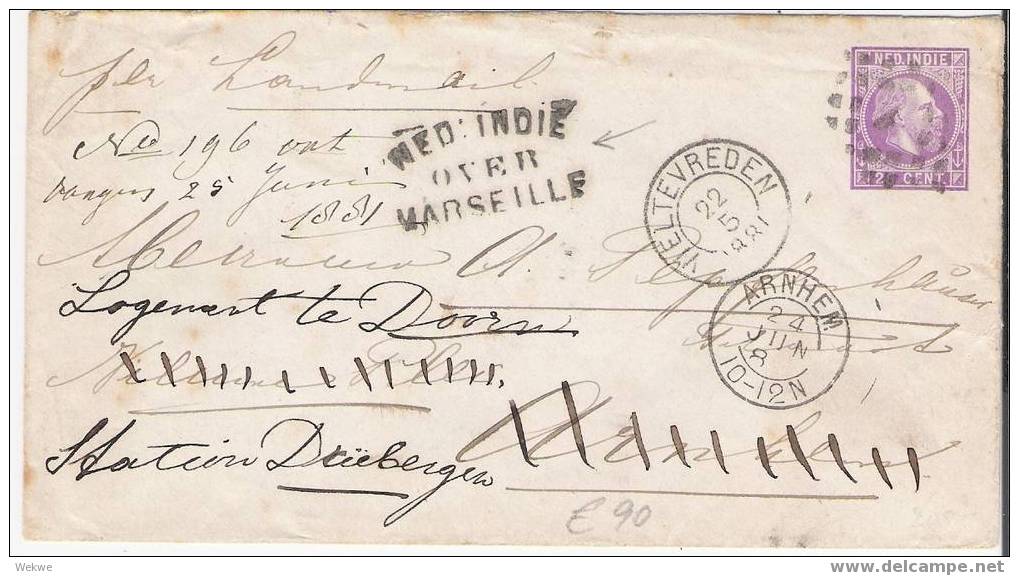 per Landmail
NED. INDIE
25 CENT.
NED: INDIE
OVER
MARSEILLE
No 196 ont
vangen 25 Juni
1881
WELTEVREDEN
22
5
1881
Mevrouw A.
ARNHEM
24
JUN
8
10-12N
Logement te Doorn
Villa
Arnhem
Station Driebergen
£90
Wekwe
www.delcampe.net